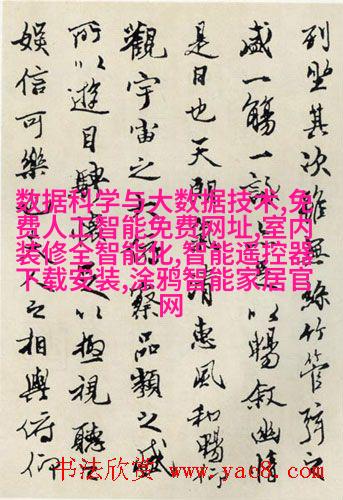 列坐其次雖無絲竹管弦之
盛一觴一詠亦足以暢敘幽情
是日也天朗氣清惠風和暢仰
觀宇宙之大俯察品類之盛
所以遊目騁懷足以極視聽之
娛信可樂也夫人之相與俯仰
数据科学与大数据技术,免
费人工智能免费网址,室内
装修全智能化,智能遥控器
下载安装,涂鸦智能家居官
网
书法欣赏 www.yac8.com